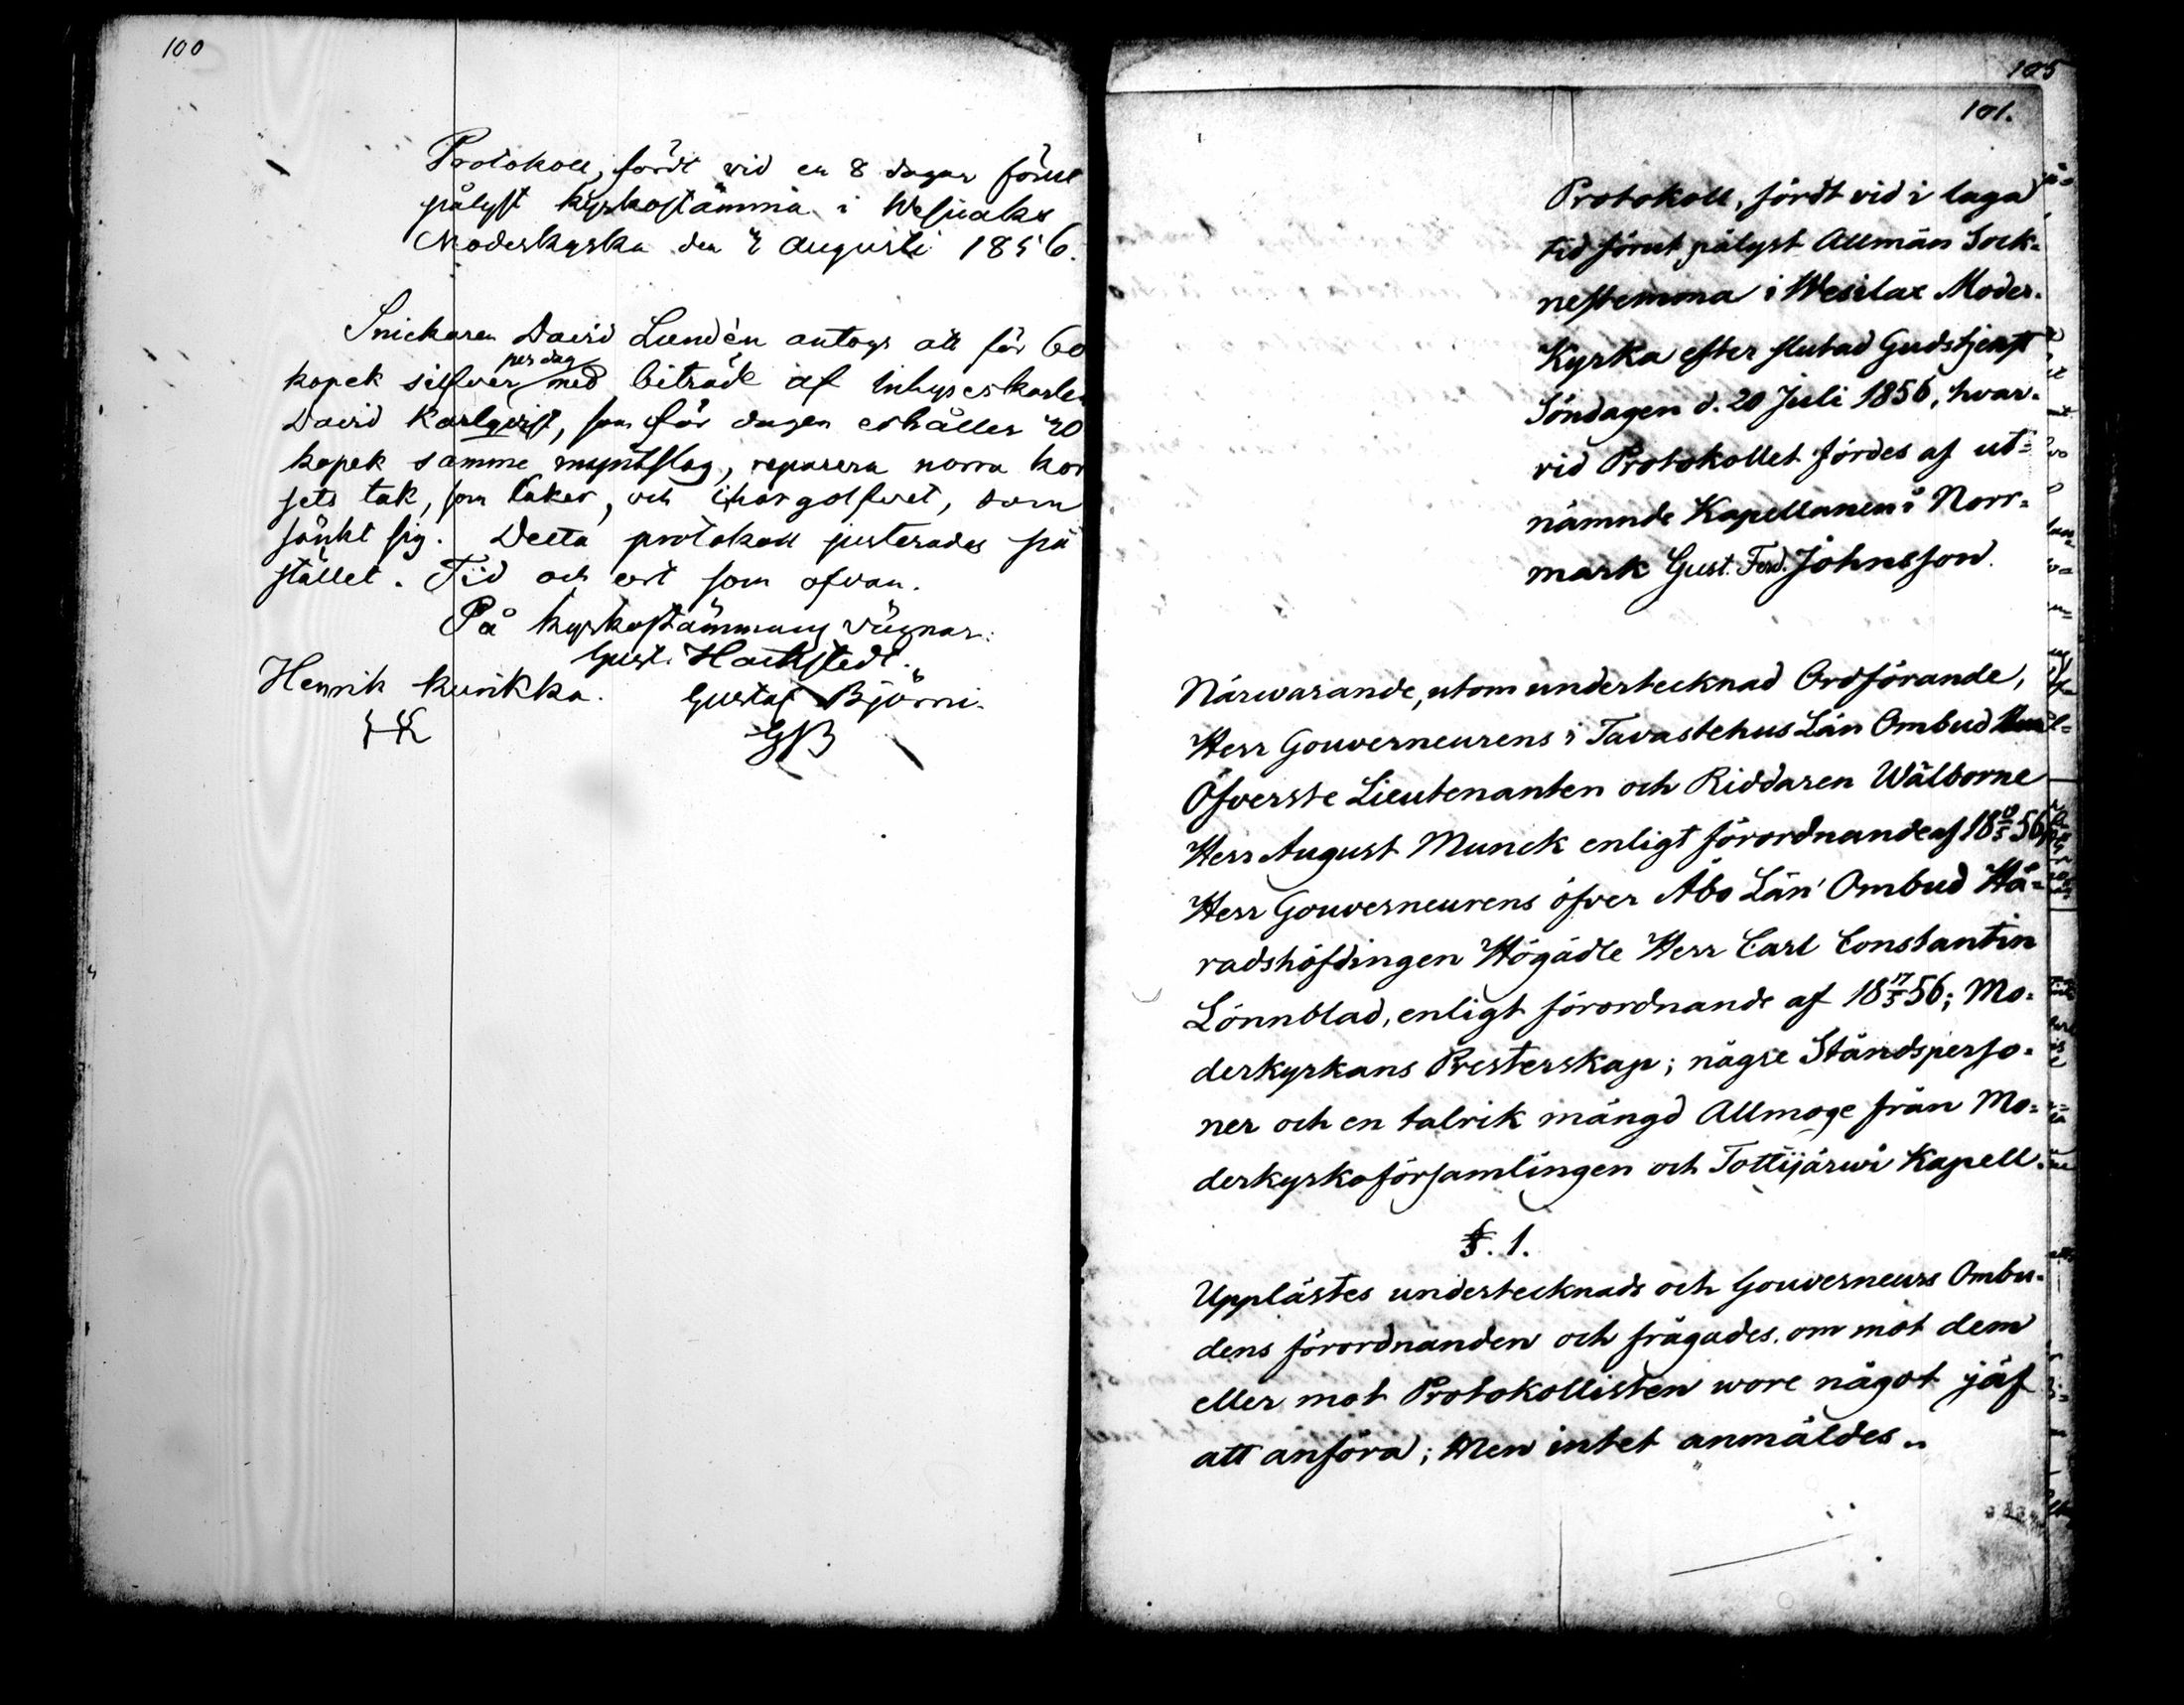 100
Protokoll, fördt vid en 8 dagar förut
pålyst kyrkostämma i Wesilaks
Moderkyrka den augusti 1856.
Snickaren David Lundén antogs att för 60
kopek silfver per dag med biträde af inhyseskarlen
David Karlqvist, som för dagen erhåller 40
kopek samme myntslag, reparera norra kor
sets tak, som läker, och i kor golfvet, som
sänkt sig. Detta protokoll justerades på
stället. Tid och ort som ofvan.
På kyrkostämmans vägnar:
Gust. Hachstedt.
Henrik Kurikka. Gustaf Björni.
HK GB
105
101.
Protokoll, fördt vid i laga
tid förut pålyst Allmän Sock-
nestemma i Wesilax Moder-
Kyrka efter slutad Gudstjenst
Söndagen d. 20 Juli 1856, hvar-
vid Protokollet fördes af ut-
nämnde Kapellanen i Norr-
mark Gust. Ferd. Johnsson.
Närwarande, utom undertecknad Ordförande,
Herr Gouverneurens i Tavastehus Län Ombud
Öfverste Lieutenanten och Riddaren Wälborne
Herr August Munck enligt förordnande af 18 56,
Herr Gouverneurens öfver Åbo Län Ombud Hä-
radshöfdingen Högädle Herr Carl Constantin
Lönnblad, enligt förordnande af 18 17/5 56; Mo-
derkyrkans Presterskap; någre Ståndsperso-
ner och en talrik mängd Allmoge från Mo-
derkyrkoförsamlingen och Tottijärwi Kapell.
§. 1.
Upplästes undertecknads och Gouverneurs Ombu-
dens förordnanden och frågades, om mot dem
eller mot Protokollisten wore något jäf
att anföra; Men intet anmäldes.